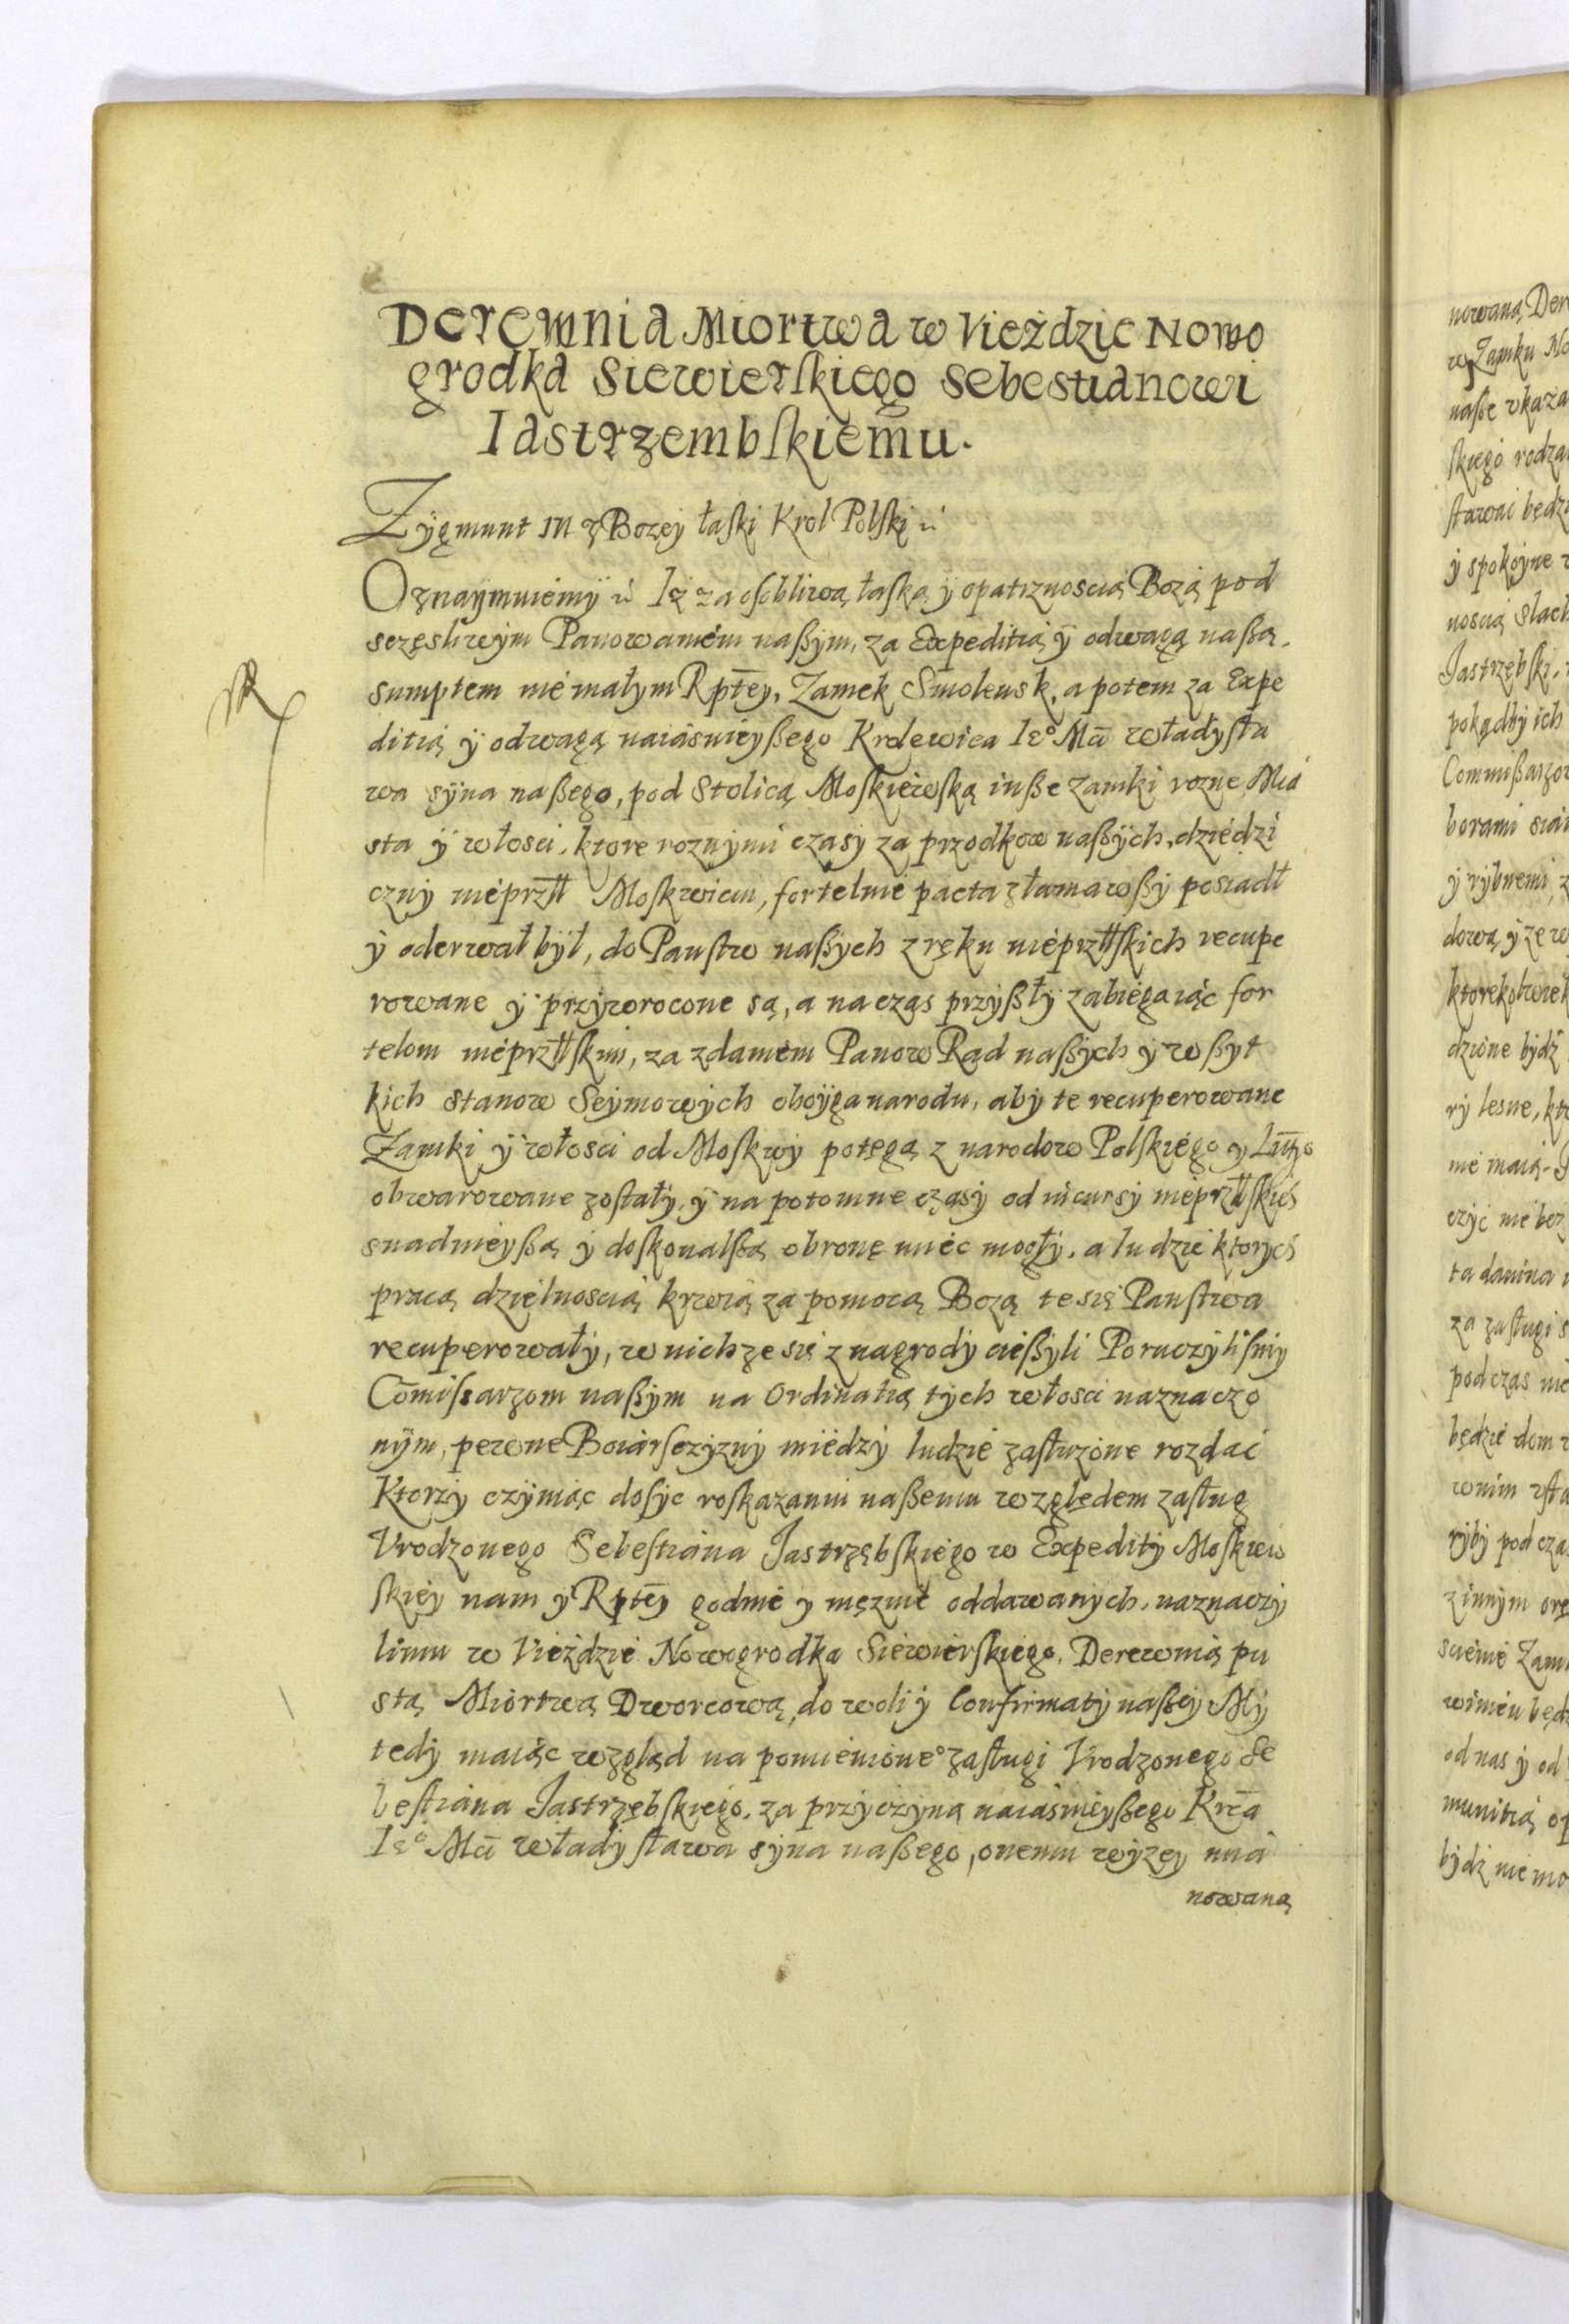 Derewnia Miortwa w Vieździe Nowo
grodka Siewierskiego Sebestianowi
Iastrzembskiemu.
Zygmunt III z Bozey łaski Krol Polski
Oznaymuiemy Iz za osobliwą łaską y opatrznoscią Bozą pod
sczęsliwym Panowaniem naszym, za Expeditią y odwagą naszą,
sumptem niemałym Rptey, Zamek Smolensk, a potem za Expe
ditią y odwagą naiasnieyszego Krolewica Ie° Mci Władysła
wa syna naszego, pod Stolicą Moskiewską insze zamki rozne Mia
sta y włosci, ktore roznymi czasy za przodkow naszych, dziedzi
czny nieprzłł Moskwicin, fortelnie pacta złamawszy posiadł
y oderwał był, do Panstw naszych z ręku nieprzłłskich recupe
rowane y przywrocone są, a na czas przyszły zabiegaiąc for
telom nieprzłłskim, za zdaniem Panow Rad naszych y wszyt
kich stanow Seymowych oboyga narodu, aby te recuperowane
Zamki y włosci od Moskwy potęgą z narodow Polskiego y Litt°
obwarowane zostały, y na potomne czasy od incursy nieprzłłskich
snadnieyszą y doskonalszą obronę miec mogły, a ludzie ktorych
pracą dzielnoscią krwią za pomocą Bozą te się Panstwa
recuperowały, w nich ze się z nagrody cieszyli Poruczylismy
Comissarzom naszym na Ordinatią tych włosci naznaczo
nym, pewne Boiarsczyzny miedzy ludzie zasłuzone rozdać
Ktorzy czyniąc dosyc roskazaniu naszemu względem zasług
Vrodzonego Sebestiana Jastrzębskiego w Expedity Moskiew
skiey nam y Rptey godnie y męznie oddawanych, naznaczy
li mu w Vieździe Nowogrodka Siewierskiego, Derewnią pu
stą Miortwą Dworcową, do woli y Confirmaty naszey My
tedy maiąc wzgląd na pomienione° zasługi Vrodzonego Se
bestiana Jastrzębskiego, za przyczyną naiasnieyszego Krca
Ie° Mci Władysława syna naszego, onemu wyzey mia
nowaną